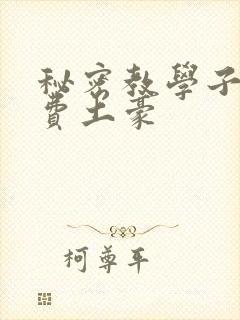 秘密教學子
費土豪
柯尊平